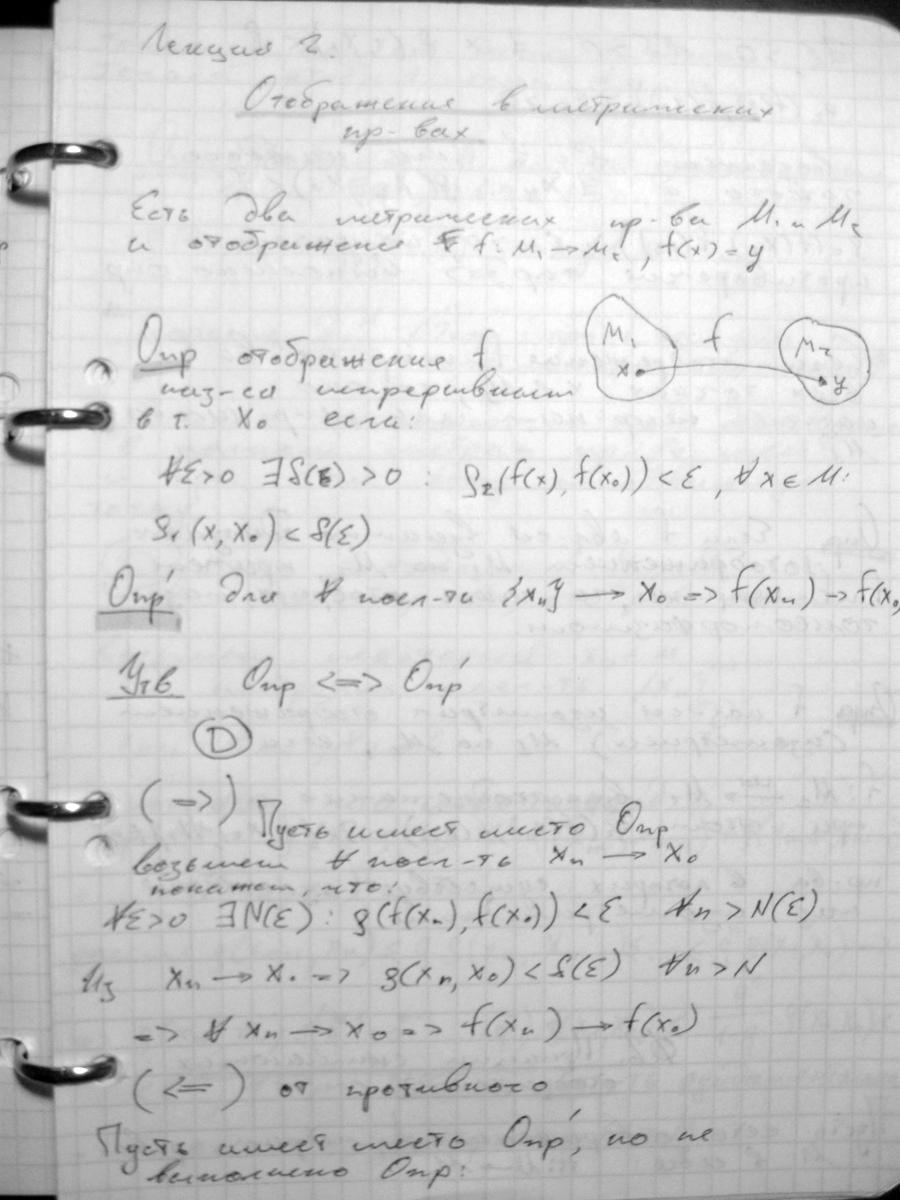 Лекция 2.
Отображения в метрических
пр-вах
Есть два метрических пр-ва M₁ и M₂
и отображение f: M₁ → M₂, f(x) = y
M₁ f M₂
x y
Опр отображения f
наз-ся непрерывным
в т. x₀ если:
∀ε>0 ∃δ(ε)>0 : ρ₂(f(x), f(x₀)) < ε, ∀x ∈ M:
ρ₁(x, x₀) < δ(ε)
Опр' для ∀ посл-ти {xₙ} → x₀ => f(xₙ) → f(x₀)
Утв Опр <=> Опр'
D
(=>) Пусть имеет место Опр
возьмем ∀ посл-ть xₙ → x₀
покажем, что:
∀ε>0 ∃N(ε): ρ(f(xₙ), f(x₀)) < ε ∀n > N(ε)
Из xₙ → x₀ => ρ(xₙ, x₀) < δ(ε) ∀n > N
=> ∀ xₙ → x₀ => f(xₙ) → f(x₀)
(<=) от противного
Пусть имеет место Опр', но не
выполнено Опр: